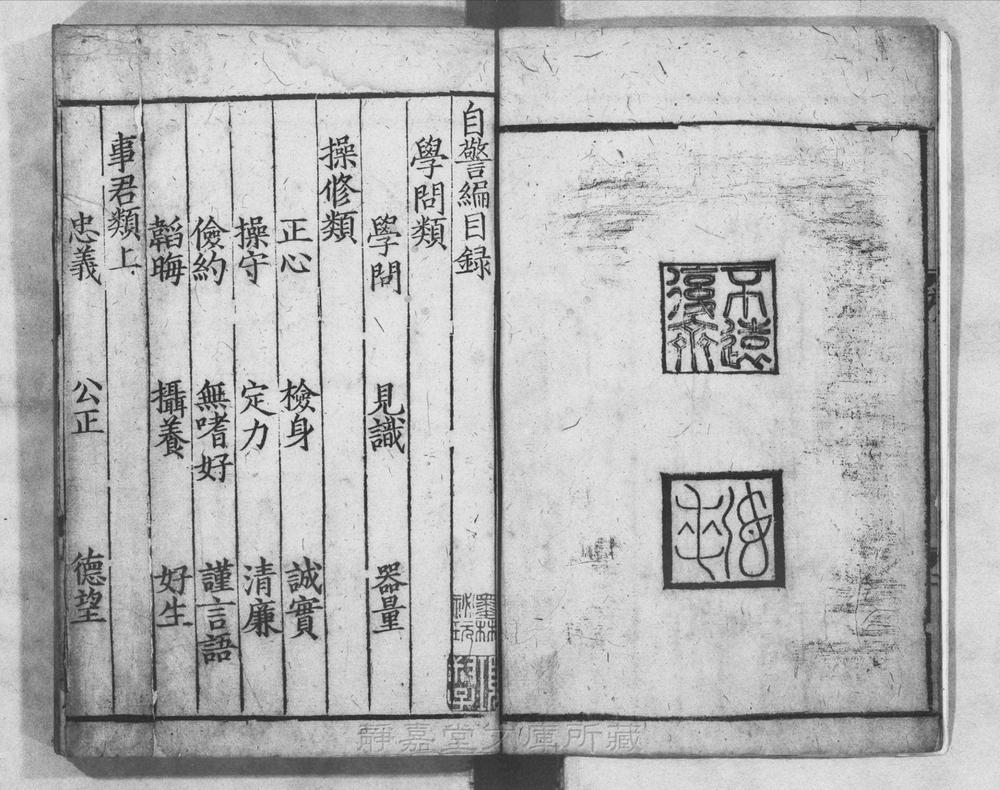 不遠
復齋
自警編目録
學問類
學問 見識 器量
操修類
正心 檢身 誠實
操守 定力 清廉
儉約 無嗜好 謹言語
韜晦 攝養 好生
事君類上
忠義 公正 德望
墨林
祕玩
靜嘉堂文庫所藏